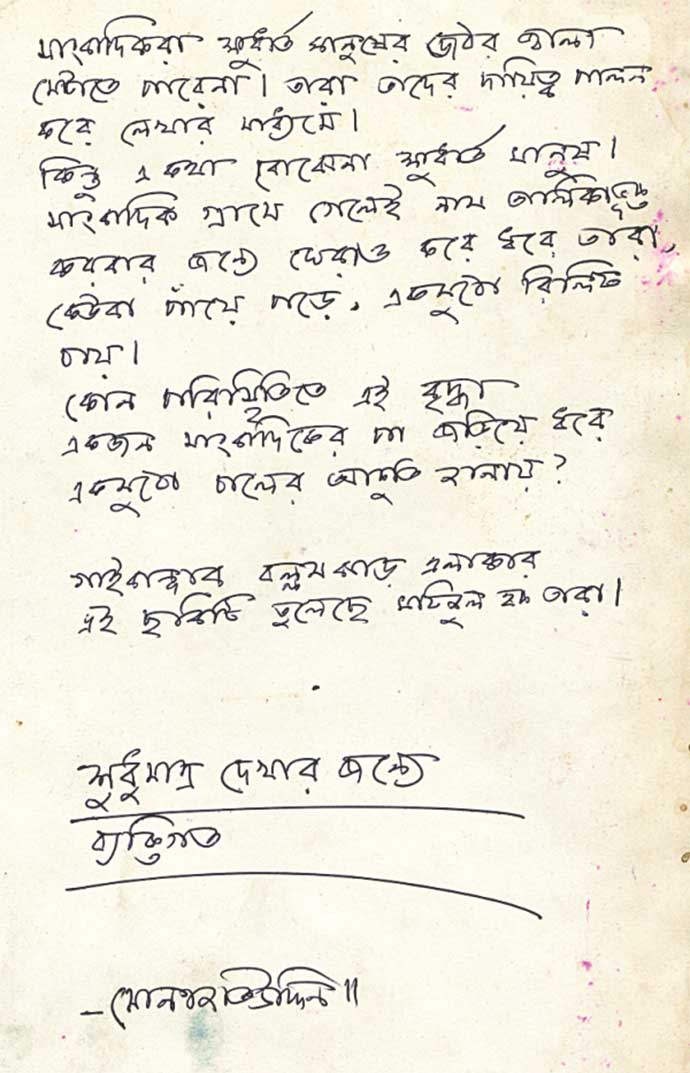 সাংবাদিকরা ক্ষুধার্ত মানুষের জঠর জ্বালা
মেটাতে পারেনা। তারা তাদের দায়িত্ব পালন
করে লেখার মাধ্যমে।
কিন্তু এ কথা বোঝেনা ক্ষুধার্ত মানুষ।
সাংবাদিক গ্রামে গেলেই নাম তালিকাভুক্ত
করবার জন্যে ঘেরাও করে ধরে তারা,
কেউবা পাঁয়ে পড়ে, একমুঠো রিলিফ
চায়।
কোন পরিস্থিতিতে এই বৃদ্ধা
একজন সাংবাদিকের পা জড়িয়ে ধরে
একমুঠো চালের আকুতি জানায়?
গাইবান্ধার বল্লমঝাড় এলাকার
এই ছবিটি তুলেছে শফিকুল হক তারা।
শুধুমাত্র দেখার জন্যে
ব্যক্তিগত
– মোনাজাতউদ্দিন॥